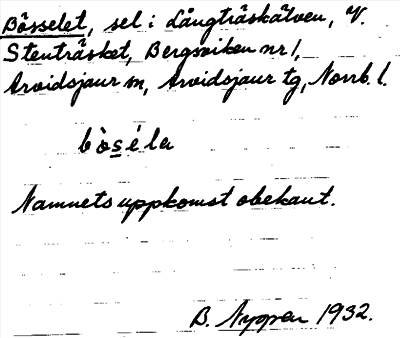 Bösselet, sel i Långträskälven, V.
Stenträsket, Bergsviken nr 1,
Arvidsjaur sn, Arvidsjaur tg, Norrb. l.
bòsé̱la
Namnets uppkomst obekant.
B. 1932.